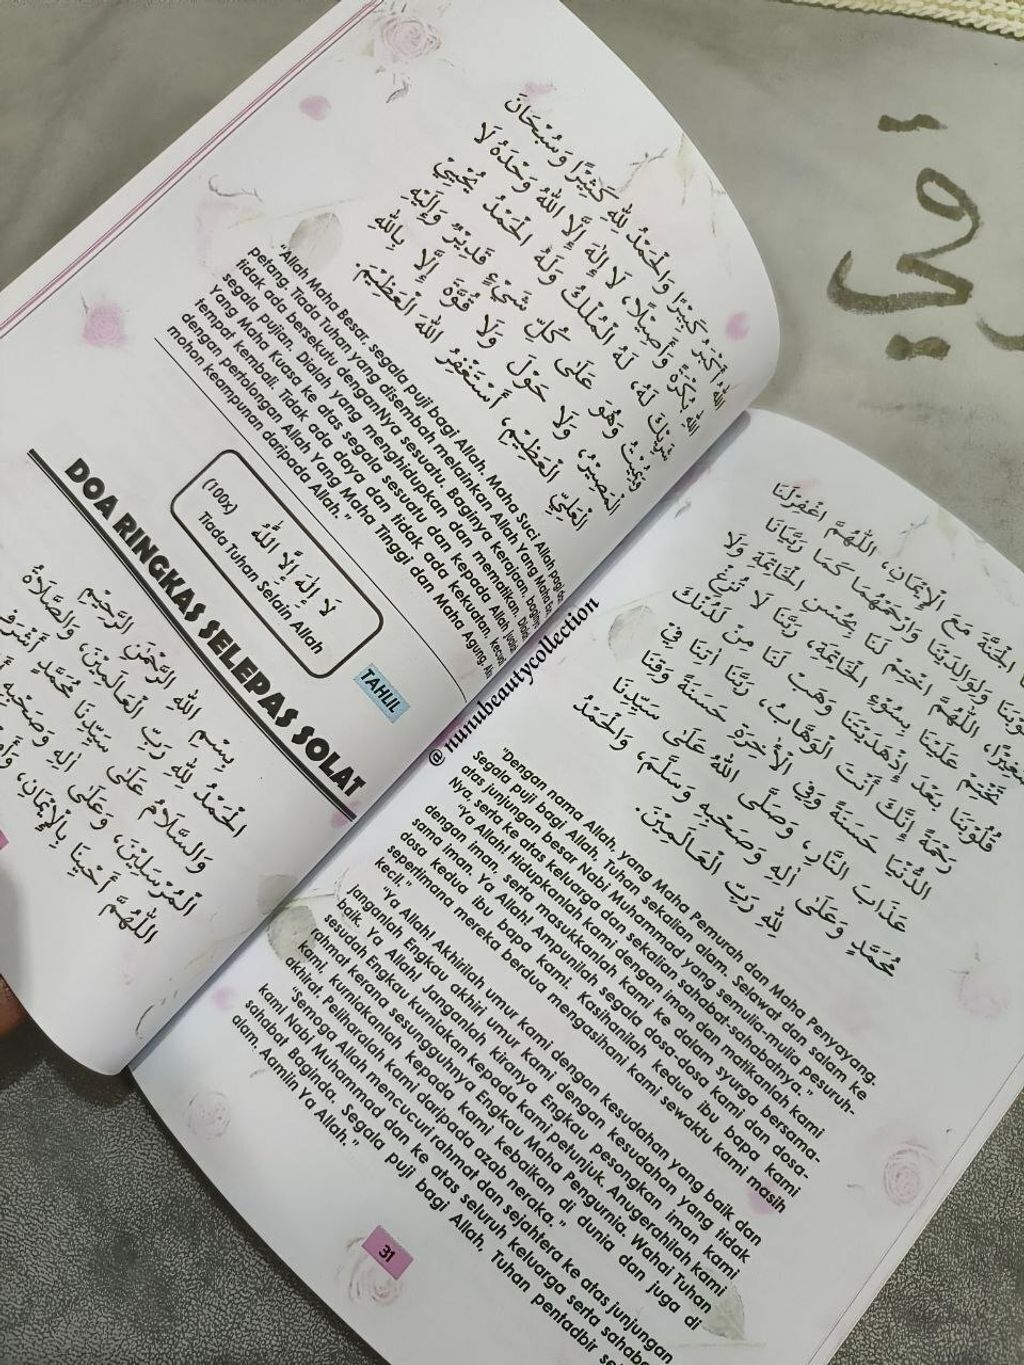 اللهُ أَكْبَرُ كَبِيْرًا وَالْحَمْدُ لِلّٰهِ كَثِيْرًا وَسُبْحَانَ
اللهِ بُكْرَةً وَأَصِيْلًا، لَا إِلٰهَ إِلَّا اللهُ وَحْدَهُ لَا
شَرِيْكَ لَهُ، لَهُ الْمُلْكُ وَلَهُ الْحَمْدُ يُحْيِيْ
وَيُمِيْتُ وَهُوَ عَلَى كُلِّ شَيْءٍ قَدِيْرٌ وَإِلَيْهِ
الْمَصِيْرُ، وَلَا حَوْلَ وَلَا قُوَّةَ إِلَّا بِاللهِ
الْعَلِيِّ الْعَظِيْمِ، أَسْتَغْفِرُ اللهَ الْعَظِيْمَ.
"Allah Maha Besar, segala puji bagi Allah, Maha Suci Allah pagi dan
petang. Tiada Tuhan yang disembah melainkan Allah Yang Maha
tidak ada bersekutu denganNya sesuatu. Baginya kerajaan, baginya
segala pujian. Dialah yang menghidupkan dan mematikan. Dialah
Yang Maha Kuasa ke atas segala sesuatu dan kepada Allah
tempat kembali. Tidak ada daya dan tidak ada kekuatan, kecuali
dengan pertolongan Allah Yang Maha Tinggi dan Maha Agung,
mohon keampunan daripada Allah."
TAHLIL
لَا إِلٰهَ إِلَّا اللّٰهُ (100x)
Tiada Tuhan Selain Allah
DOA RINGKAS SELEPAS SOLAT
بِسْمِ اللهِ الرَّحْمٰنِ الرَّحِيْمِ
الْحَمْدُ لِلّٰهِ رَبِّ الْعَالَمِيْنَ، وَالصَّلَاةُ
وَالسَّلَامُ عَلَى سَيِّدِنَا مُحَمَّدٍ أَشْرَفِ
الْمُرْسَلِيْنَ، وَعَلَى اٰلِهِ وَصَحْبِهِ
اللّٰهُمَّ أَحْيِنَا بِالْإِيْمَانِ،
الْجَنَّةَ مَعَ الْإِيْمَانِ، اللّٰهُمَّ اغْفِرْلَنَا
وَلِوَالِدَيْنَا وَارْحَمْهُمَا كَمَا رَبَّيَانَا
صَغِيْرًا، اللّٰهُمَّ اخْتِمْ لَنَا بِحُسْنِ الْخَاتِمَةِ وَلَا
تَخْتِمْ عَلَيْنَا بِسُوْءِ الْخَاتِمَةِ، رَبَّنَا لَا تُزِغْ
قُلُوْبَنَا بَعْدَ إِذْهَدَيْتَنَا وَهَبْ لَنَا مِنْ لَدُنْكَ
رَحْمَةً إِنَّكَ أَنْتَ الْوَهَّابُ، رَبَّنَا اٰتِنَا فِي
الدُّنْيَا حَسَنَةً وَفِي الْاٰخِرَةِ حَسَنَةً وَقِنَا
عَذَابَ النَّارِ، وَصَلَّى اللهُ عَلَى سَيِّدِنَا
مُحَمَّدٍ وَعَلَى اٰلِهِ وَصَحْبِهِ وَسَلَّمَ، وَالْحَمْدُ
لِلّٰهِ رَبِّ الْعَالَمِيْنَ.
"Dengan nama Allah, yang Maha Pemurah dan Maha Penyayang.
Segala puji bagi Allah, Tuhan sekalian alam. Selawat dan salam ke
atas junjungan besar Nabi Muhammad yang semulia-mulia pesuruh-
Nya, serta ke atas keluarga dan sekalian sahabat-sahabatnya."
"Ya Allah! Hidupkanlah kami dengan iman dan matikanlah kami
dengan iman, serta masukkanlah kami ke dalam syurga bersama-
sama iman. Ya Allah! Ampunilah segala dosa-dosa kami dan dosa-
dosa kedua ibu bapa kami. Kasihanilah kedua ibu bapa kami
seperimana mereka berdua mengasihani kami sewaktu kami masih
kecil."
"Ya Allah! Akhirilah umur kami dengan kesudahan yang baik dan
janganlah Engkau akhiri umur kami dengan kesudahan yang tidak
baik. Ya Allah! Janganlah kiranya Engkau pesongkan iman kami
sesudah Engkau kurniakan kepada kami petunjuk. Anugerahilah kami
rahmat kerana sesungguhnya Engkau Maha Pengurnia. Wahai Tuhan
kami, kurniakanlah kepada kami kebaikan di dunia dan juga di
akhirat. Peliharalah kami daripada azab neraka."
"Semoga Allah mencucuri rahmat dan sejahtera ke atas junjungan
kami Nabi Muhammad dan ke atas seluruh keluarga serta sahabat-
sahabat Baginda. Segala puji bagi Allah, Tuhan pentadbir
alam. Aamiin Ya Allah."
31
@nunubeautycollection